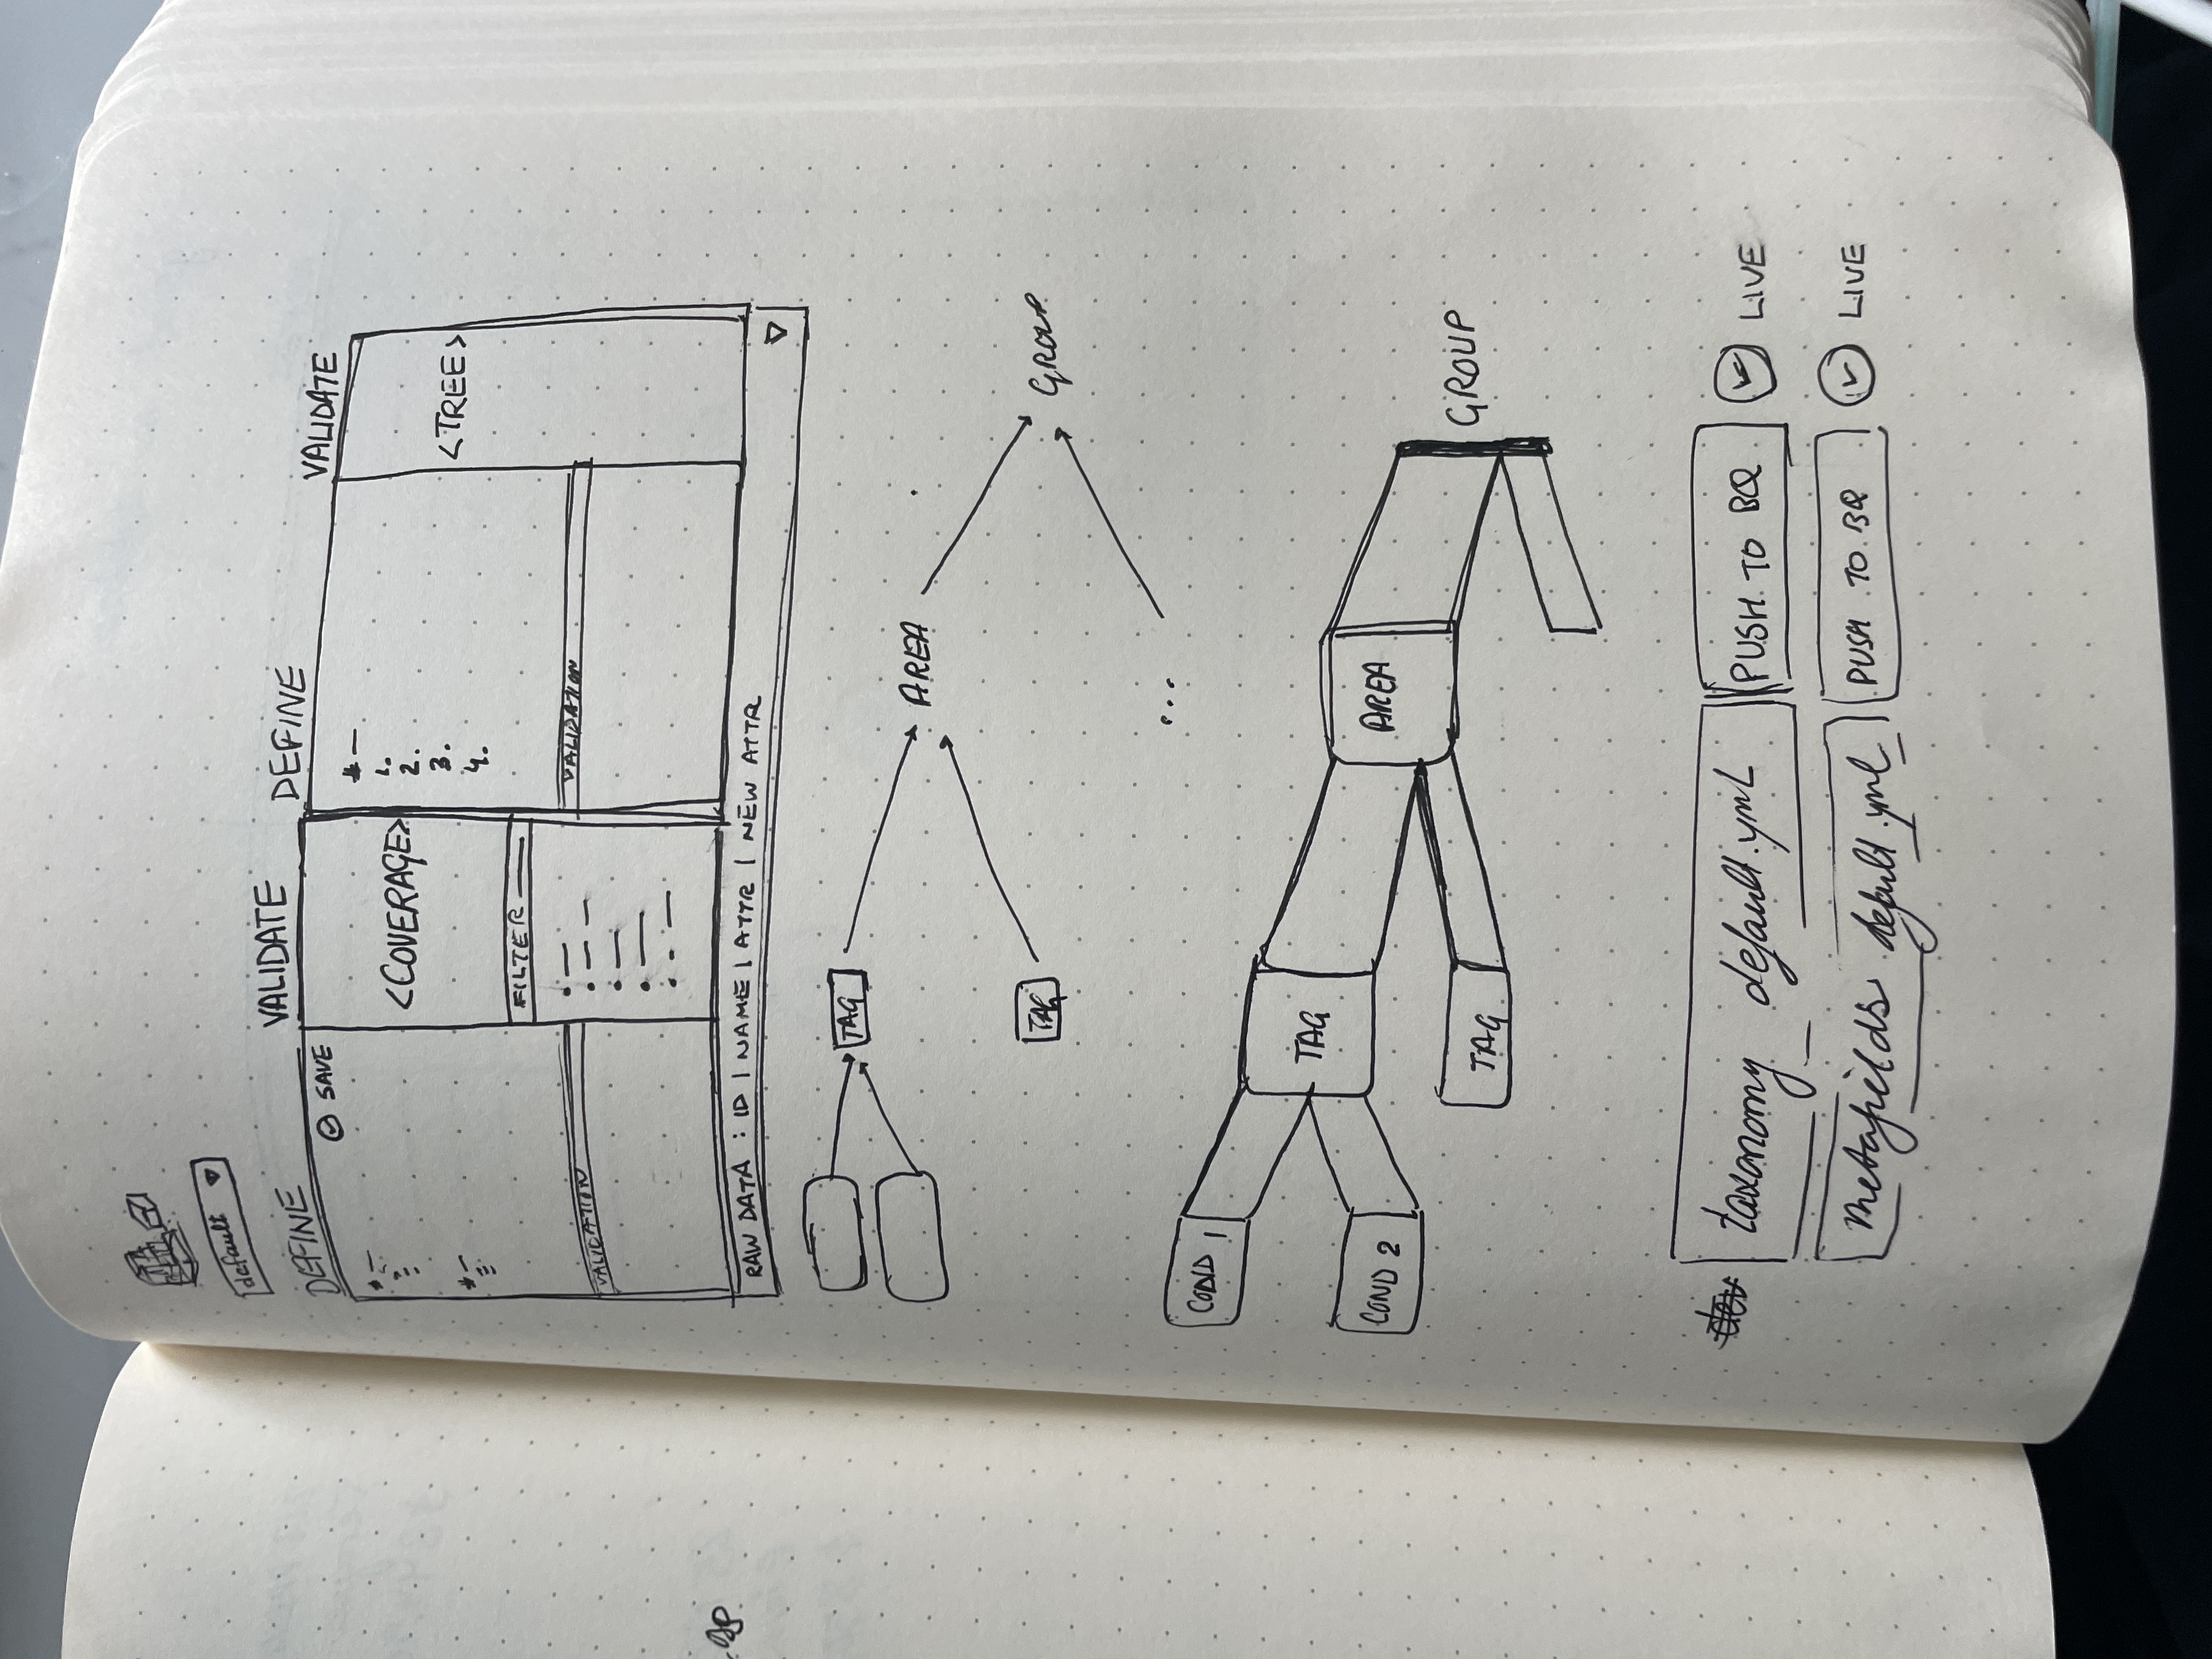 default
DEFINE
VALIDATE
DEFINE
VALIDATE
SAVE
<COVERAGE>
FILTER
VALIDATION
1.
2.
3.
4.
<TREE>
VALIDATION
RAW DATA : ID | NAME | ATTR | NEW ATTR
TAG
AREA
TAG
GROUP
...
COND 1
TAG
COND 2
AREA
TAG
GROUP
dev
taxonomy_default.yml
PUSH TO BQ
LIVE
metafields_default.yml
PUSH TO BQ
LIVE